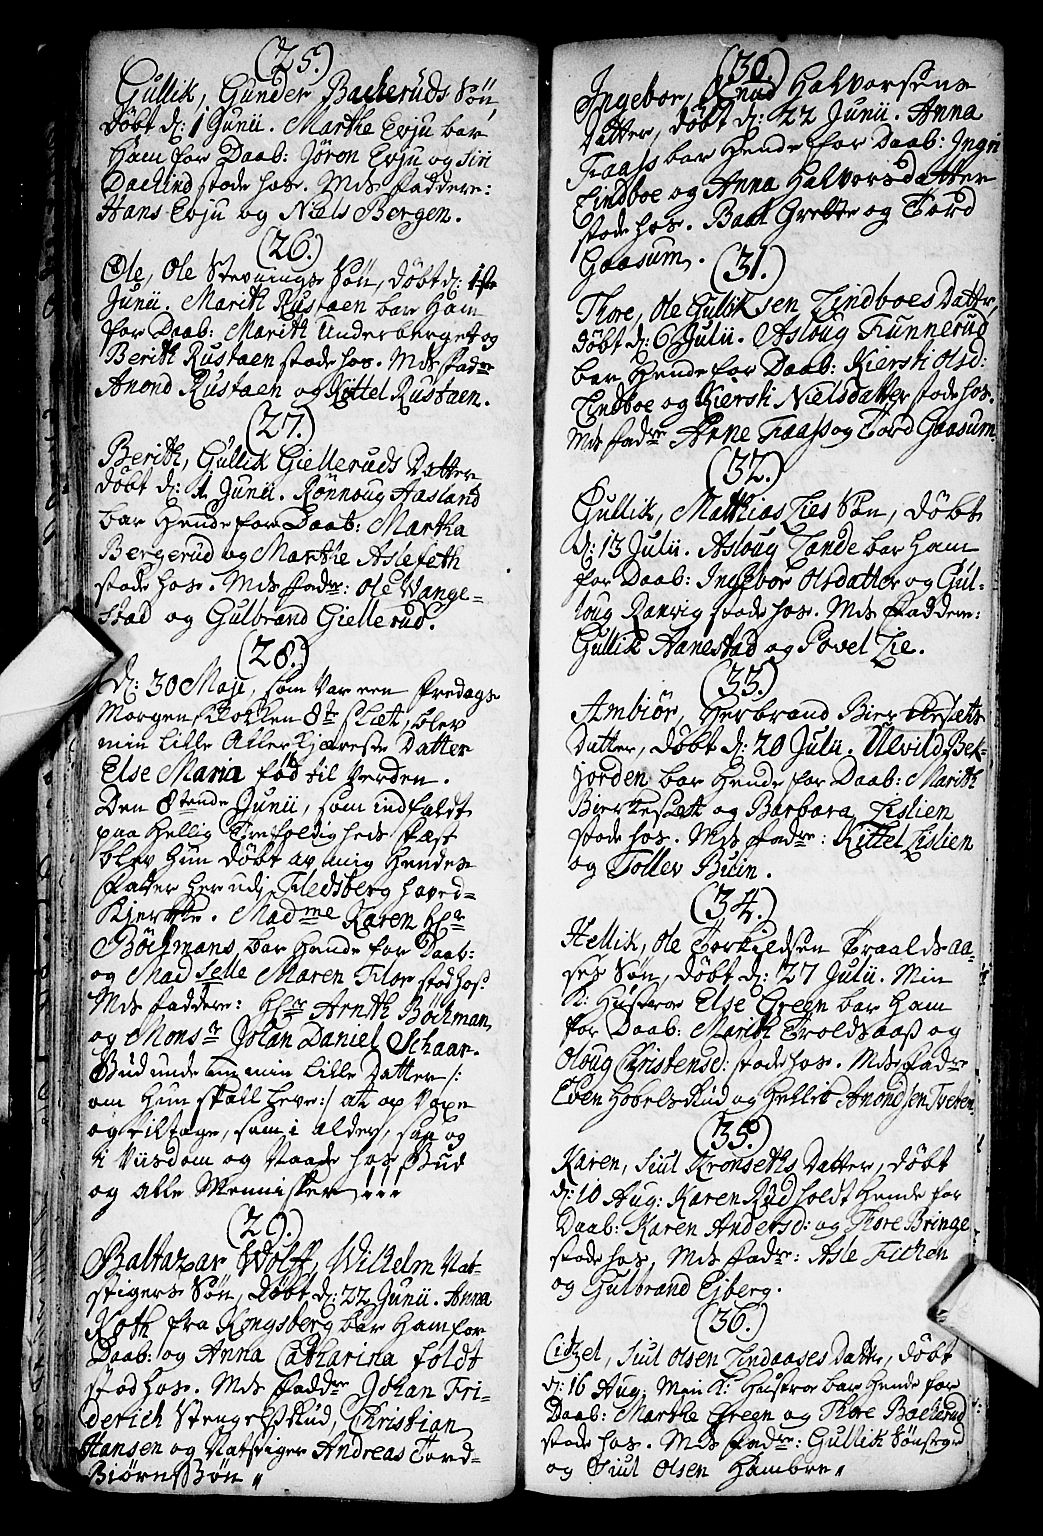 (25.)
Gullik, Gunder Bacheruds Søn,
döbt d: 1 Junii. Marthe Evju bar
ham for Daab: Jøron Evju og Siri
Dachind stode hos. Mds faddere:
Hans Evju og Niels Bergen.
(26.)
Ole, Ole Stevnings Søn, döbt d: 1ste
Junii. Marith Rustaen bar Ham
for Daab: Marith Underberget og
Berith Rustaen stode hos. Mds fadre
Anond Rustaen og Kittel Rustaen.
(27.)
Berith, Gullik Gielleruds Datter
döbt d: 1 Junii. Rönnoug Hasland
bar Hende for Daab: Martha
Bergerud og Marthe Aslefeth
stode hos. Mds fadre: Ole Wange-
stad og Gulbrand Giellerud.
(28.)
d: 30 Maji, som Var een Fredags
Morgen Klokken 8te slæt, blev
min lille Allerkjæreste Datter
Else Maria fød til Verden.
Den 8tende Junii, som indfaldt
paa Hellig Trefoldigheds Fæst
blev Hun döbt av mig Hendes
Fader her udj Flesberg hoved-
Kierke. Madme Karen Hr
Böchmans, bar Hende for Daab:
og Madselle Maren Filoe stod hos:
Mds faddere: Hr Arnth Böchman,
og Monsr Johan Daniel Schaar.
Gud unde min lille Datter /:
om Hun skall leve:/ at op Voxe
og tiltage, som i alder, saa og
i Viisdom og Naade hos Gud
og alle Mennisker!!!
(29.)
Baltazar Wolff, Wilhelm Nat-
stigers Søn, Döbt d: 22 Junii. Anna
Koth fra Kongsberg bar Ham for
Daab: og Anna Catharina Foldt
stod hos. Mds faddre Johan Fri-
derich Stengelsrud, Christian
Hansen og Natstiger Andreas Tord-
Biørns Søn
(30.)
Ingebor, Knud Halvorsens
Datter, döbt d: 22 Junii. Anna
Faass bar Hende for Daab: Ingri
Lindboe og Anna Halvorsdatter
stode hos. Baal Grette og Tord
Gaasum.
(31.)
Thore, Ole Gulliksen Lindboes Datter,
döbt d: 6 Julii. Asloug Funnerud
bar Hende for Daab: Kiersti Olsd:
Lindboe og Kiersti Nielsdatter stode hos.
Mds fadre Anne Faass og Tord Gaasum
(32.)
Gullik, Mathias Lies Søn, döbt
d: 13 Julii. Asloug Lande bar Ham
for Daab: Ingebor Olsdatter og Gul-
loug Ranvig stode hos. Mds Faddere:
Gullik Aanestad og Povel Lie.
(33.)
Ambiör, Herbrand
Datter, Döbt d: 20 Julii. Ulvild Bek-
jorden bar Hende for Daab: Marith
Bierkeset og Barbara Lislien
stode hos. Mds fadre: Kittel Lislien
og Tollev Buin.
(34.)
Hellik, Ole Torkildsen Traaldsaa-
ses Søn, döbt d: 27 Julii. Min
K: Hustroe Else Green bar Ham
for Daab: Marith Troldsaass og
Oloug Christensd: stode hos. Mds fadre
Even Hobelsrud og Hellik Anondsen Tveten
(35.)
Karen, Juul Kronseths Datter, döbt
d: 10 Aug: Karen Rud holdt Hende for
Daab: Karen Andersd: og Thore Bringe
stode hos, Mds fadre: Asle Fithen
og Gulbrand Ejberg.
(36.)
Cidzel, Juul Olsen Lindaases Datter, döbt
d: 16 Aug: Min K: Hustroe bar Hende for
Daab: Marthe Green og Thore Bacherud
stode hos. Mds fadre: Gullik Sønsteqrd
og Juul Olsen Hambre